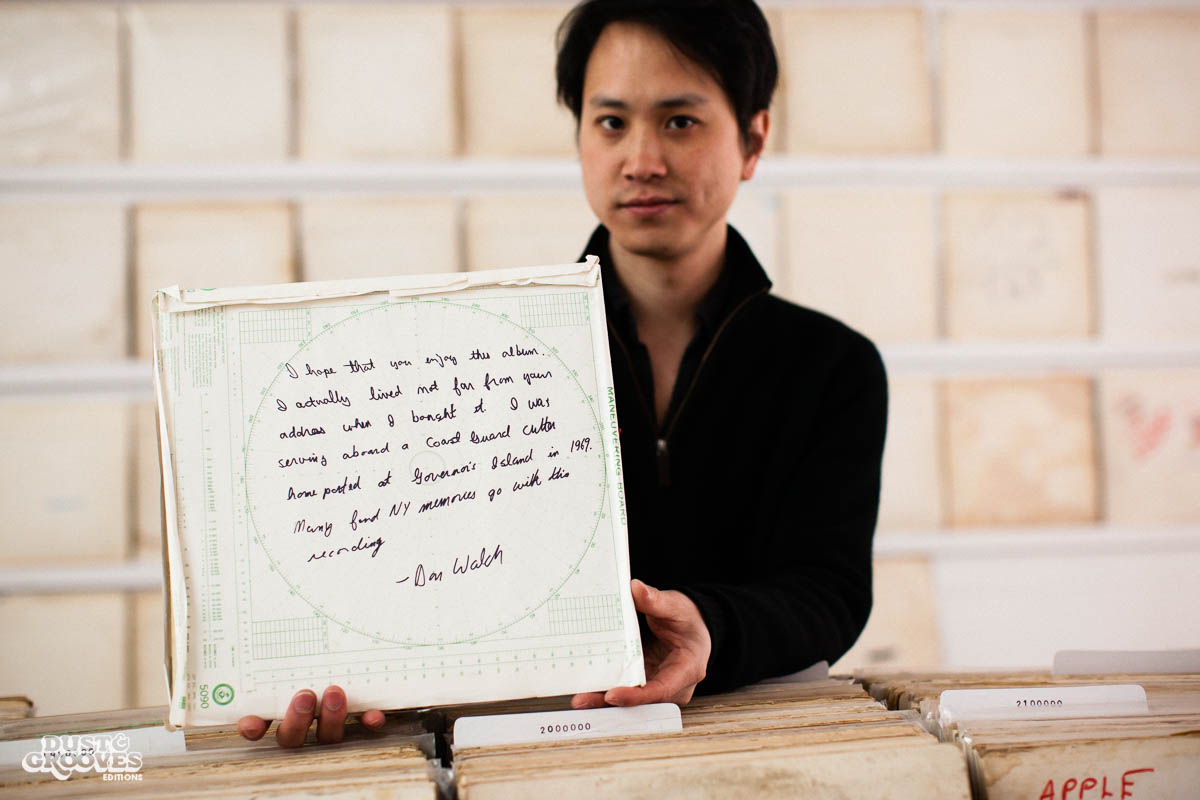 I hope that you enjoy this album.
I actually lived not far from your
address when I bought it. I was
serving aboard a Coast Guard Cutter
home ported at Governor's Island in 1969.
Many fond NY memories go with this
recording
- Don Walch
MANEUVERING BOARD
5090
2000000
2100000
APPLE
DUST & GROOVES
EDITIONS